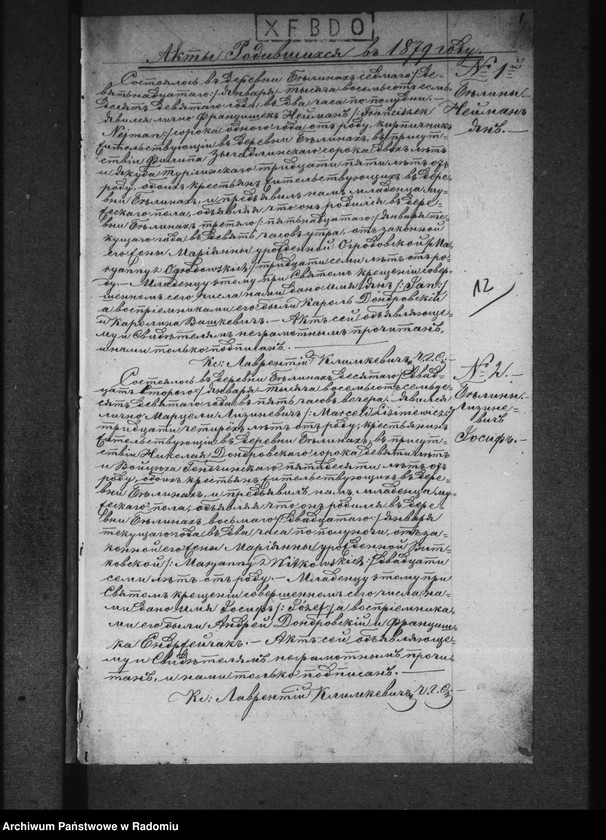 XFBDO
1
Акты Родившихся въ 1879 году.
№ 1й
Бѣлины
Нейманъ
Янъ. —
Состоялось въ деревни Бѣлинахъ седьмаго/де-
вятнадцатаго/ Января тысяча восемьсотъ семь-
десятъ девятаго года, въ два часа по полудни. —
Явился лично Францишекъ Нейманъ /: Franciszek
Nejman:/ сорока одного года отъ роду, кирпичникъ
жительствующій въ деревни Бѣлинахъ, въ присут-
ствіи Филипа сорока двухъ лѣтъ
и Якуба Турлинскаго тридцати пяти лѣтъ отъ
роду, обоихъ крестьянъ жительствующихъ въ дерев-
ни Бѣлинахъ, и предъявилъ намъ младенца му-
жескаго пола, объявляя что онъ родился въ дере-
вни Бѣлинахъ третьяго/пятнадцатаго/ Января те-
кущаго года въ девять часовъ утра, отъ законной
его жены Маріанны урожденной Огродовской /: Ma-
ryanny z Ogrodowskich:/ тридцати семи лѣтъ отъ ро-
ду. — Младенцу этому при Святомъ крещеніи совер-
шенномъ сего числа нами дано имя Янъ /: Jan:/
а воспріемниками его были Кароль Домбровскій
и Каролина Вашкевичъ. — Актъ сей объявляюще-
му и Свидѣтелямъ неграмотнымъ прочитанъ,
и нами только подписанъ. —
Кс: Лаврентій Климкевичъ Ч.Г.С. —
12
№ 2. —
Бѣлины
Лизине-
вичъ
Іосифъ. —
Состоялось въ деревни Бѣлинахъ десятаго/двад-
цать втораго/ Января тысяча восемьсотъ семьде-
сятъ девятаго года въ пять часовъ вечера. Явился
лично Марцели Лизиневичъ /: Marceli Lizinewicz:/
тридцати четырёхъ лѣтъ отъ роду, крестьянинъ
жительствующій въ деревни Бѣлинахъ, въ присут-
ствіи Николая Домбровскаго сорока девяти лѣтъ
и Войцѣха пятидесяти лѣтъ отъ
роду, обоихъ крестьянъ жительствующихъ въ дерев-
ни Бѣлинахъ, и предъявилъ намъ младенца му-
жескаго пола, объявляя что онъ родился въ дере-
вни Бѣлинахъ восьмаго/двадцатаго/ Января
текущаго года въ два часа по полуночи, отъ за-
конной его жены Маріанны урожденной Вит-
ковской /: Maryanny z Witkowskich:/ двадцати
семи лѣтъ отъ роду. — Младенцу этому при
Святомъ крещеніи совершенномъ сего числа на-
ми дано имя Іосифъ /: Józef:/ а воспріемника-
ми его были Андрей Домбровскій и Францишка
Ендржейчакъ. — Актъ сей объявляюще-
му и Свидѣтелямъ неграмотнымъ прочи-
танъ, и нами только подписанъ. —
Кс: Лаврентій Климкевичъ Ч.Г.С. —
Archiwum Państwowe w Radomiu